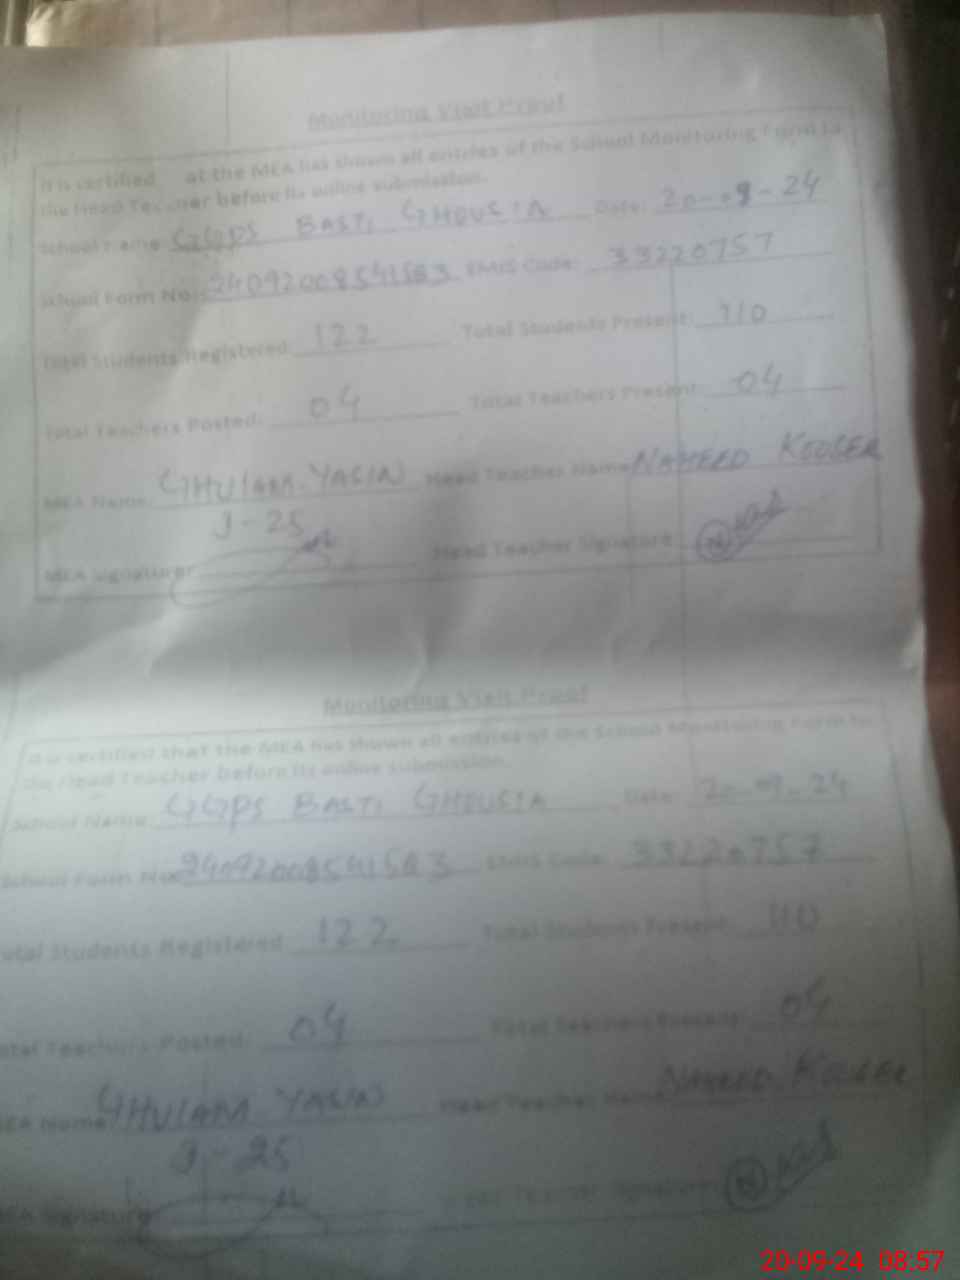 Monitoring Visit Proof
It is certified at the MEA has shown all entries of the School Monitoring Form to
the Head Teacher before its online submission.
School Name: GGPS BASTI GHOUSIA Date: 20-09-24
School Form No: 24092008541583 EMIS Code: 33220757
Total Students Registered: 122 Total Students Present: 110
Total Teachers Posted: 04 Total Teachers Present: 04
MEA Name: GHULAM YASIN Head Teacher Name: NAHEED KOUSER
J-25
MEA Signature: Head Teacher Signature:
Monitoring Visit Proof
It is certified that the MEA has shown all entries of the School Monitoring Form to
the Head Teacher before its online submission.
School Name: GGPS BASTI GHOUSIA Date: 20-09-24
School Form No: 24092008541583 EMIS Code: 33220757
Total Students Registered: 122 Total Students Present: 110
Total Teachers Posted: 04 Total Teachers Present: 04
MEA Name: GHULAM YASIN Head Teacher Name: NAHEED KOUSER
J-25
MEA Signature: Head Teacher Signature:
20-09-24 08:57